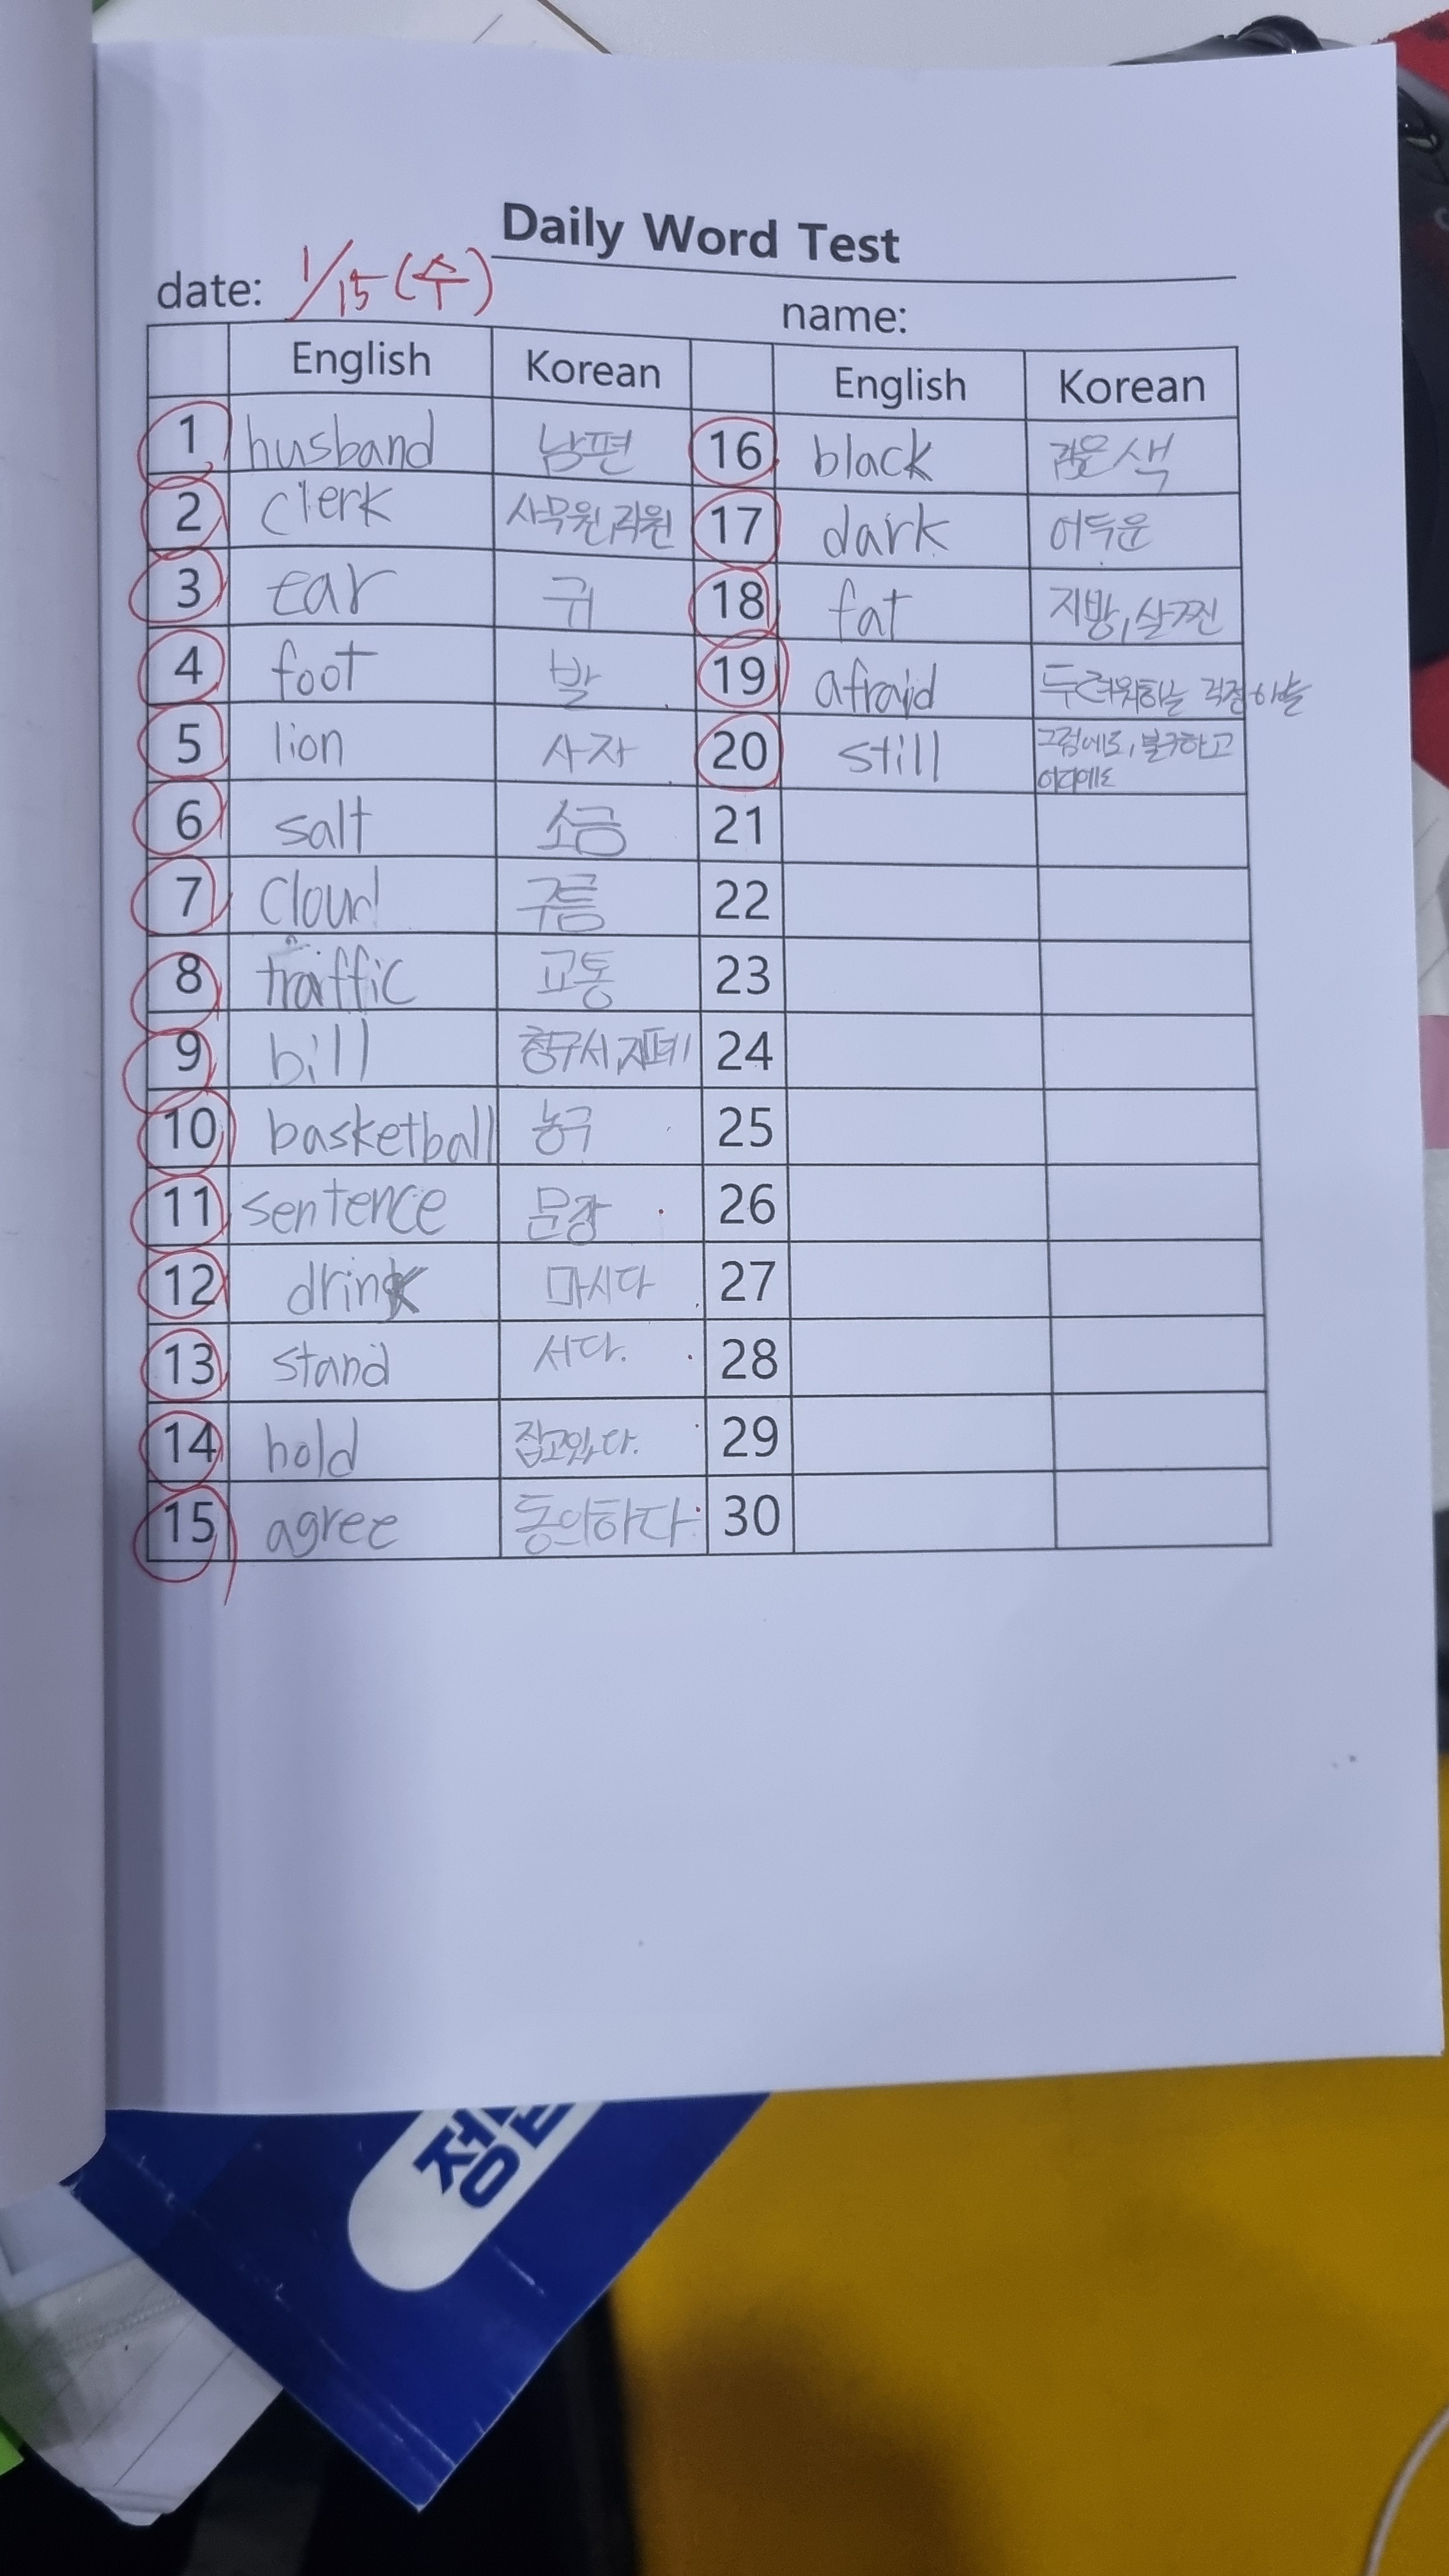 Daily Word Test
date: 1/15 (수) name:
English Korean English Korean
1 husband 남편 16 black 검은색
2 clerk 사무원,직원 17 dark 어두운
3 ear 귀 18 fat 지방,살찐
4 foot 발 19 afraid 두려워하는 걱정하는
5 lion 사자 20 still 그럼에도,불구하고
6 salt 소금 21
7 cloud 구름 22
8 traffic 교통 23
9 bill 청구서,지폐 24
10 basketball 농구 25
11 sentence 문장 26
12 drink 마시다 27
13 stand 서다. 28
14 hold 잡고있다. 29
15 agree 동의하다. 30